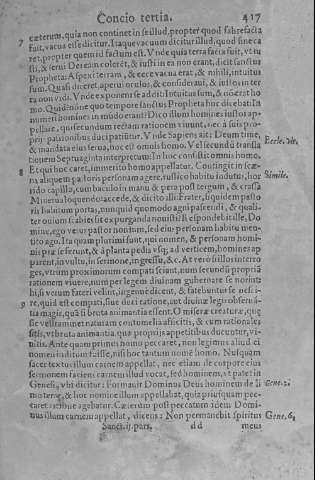 Concio tertia. 417
cæterum, quia non continet in se illud, propter quod fabrefacta
fuit, vacua esse dicitur. Itaque vacuum dicitur illud, quod sine ea
7 ret, propter quem id factum est. Vnde quia terra facta fuit, vt
sti, & serui Dei eam colerét, & iusti in ea non erant, dicit sanctus
Propheta: Aspexi terram, & ecce vacua erat, & nihil, intuitus
sum. Quasi diceret, aperui oculos, & consideraui, & iustos in ter
ra non vidi. Vnde exponens se addit: Intuitus sum, & nō erat ho
mo. Quid nōne quo tempore sanctus Propheta hoc dicebat
numeri homines in mūdo erant? Dico illum homines iustos ap-
pellare, qui secundum rectam rationem viuunt, nec à suis pro-
prijs passionibus duci patiútur. Vnde Sapiens ait: Deum time,
& mandata eius serua, hoc est omnis homo. Vel secundū transla Eccle. vlt.
tionem Septuaginta interpretum: In hoc consistit omnis homo.
8 Et qui hoc caret, immeritò homo appellatur. Contingit in scæ-
na aliquem pastoris personam agere, rustico habitu indutū, hor Simile.
rido capillo, cum baculo in manu & pera post tergum, & crassa
Minerua loquendo: accede, & dicito illi: Frater, siquidem pasto
ris habitum portas, nunquid quomodo agni pascendi, & qualiter
ouium scabies sit expurganda nouisti? Respondebit ille. Do
mine, ego verus pastor non sum, sed eius personam habitu men-
tito ago. Ita quam plurimi sunt, qui nomen, & personam homi-
nis præ se ferunt, & à planta pedis vsq; ad verticem, homines ap
parent, in vultu, in sermone, ingressu, &c. At verò si illos interro
ges, vtrum proximorum compati sciant, num secundū propriā
rationem viuere, num per legem diuinam gubernare se norint?
hi, si verum fateri velint, ingenuè dicent, & fatebuntur se nesci-
9 re, quid est compati, siue duci ratione, aut diuinæ legis obseruā-
tia magis, quā si bruta animantia essent. O miseræ creaturæ, quę
sic vestram et naturam contumelia afficitis, & cum rationales
sitis, vt bruta animantia quæ proprijs appetitibus ducuntur, vi-
uitis. Ante quam primus homo peccaret, non legimus aliud ei
nomen inditum fuisse, nisi hoc tantum nomē homo. Nusquam
sacer textus illum carnem appellat, nec etiam de corpore eius
sermonem faciens carnem illud vocat, sed hominem, vt patet in
Genesi, vbi dicitur: Formauit Dominus Deus hominem de li Gene. 2.
mo terræ, & hoc nomine illum appellabat, quia priusquam pec-
caret ratione agebatur. Cæterùm post peccatum idem Domi-
nus illum carnem appellat, dicens: Non permanebit spiritus Gene. 6.
Sanct. ij. pars. dd meus